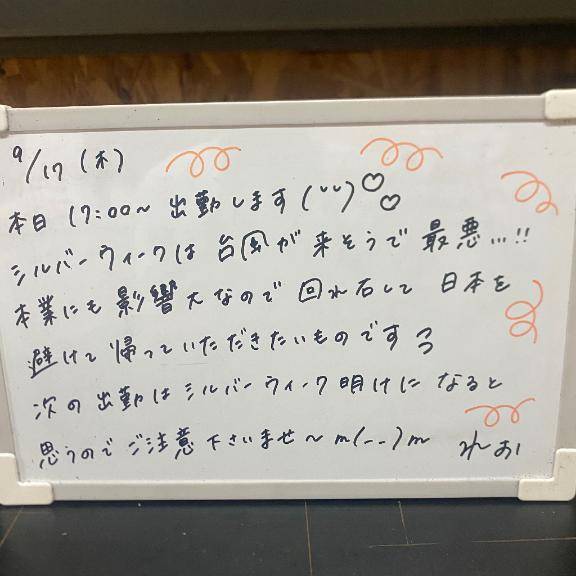 9/17 (木)
本日 17:00~ 出勤します(ˇˇ)♡♡
シルバーウィークは 台風が 来そうで 最悪...!!
本業にも 影響大なので 回れ右して 日本を
避けて 帰っていただきたいものです
次の 出勤は シルバーウィーク明けに なると
思うので ご注意 下さいませ~ m(--)m れお